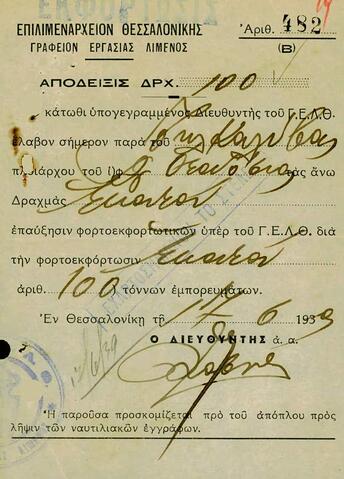 ΕΚΦΟΡΤΩΣΙΣ
ΕΠΙΛΙΜΕΝΑΡΧΕΙΟΝ ΘΕΣΣΑΛΟΝΙΚΗΣ Ἀριθ. 482
ΓΡΑΦΕΙΟΝ ΕΡΓΑΣΙΑΣ ΛΙΜΕΝΟΣ (Β)
ΑΠΟΔΕΙΞΙΣ ΔΡΧ. 100
κάτωθι ὑπογεγραμμένος Διευθυντὴς τοῦ Γ.Ε.Λ.Θ.
ἔλαβον σήμερον παρὰ τοῦ
πλοιάρχου τοῦ τὰς ἄνω
Δραχμὰς Ἑκατὸν
ἐπαύξησιν φορτοεκφορτωτικῶν ὑπὲρ τοῦ Γ.Ε.Λ.Θ. διὰ
τὴν φορτοεκφόρτωσιν Ἑκατὸν
ἀριθ. 100 τόννων ἐμπορευμάτων.
Ἐν Θεσσαλονίκῃ τῇ 17-6-1939
Ο ΔΙΕΥΘΥΝΤΗΣ ἀ.α.
17/6/39
Ἡ παροῦσα προσκομίζεται πρὸ τοῦ ἀπόπλου πρὸς
λῆψιν τῶν ναυτιλιακῶν ἐγγράφων.